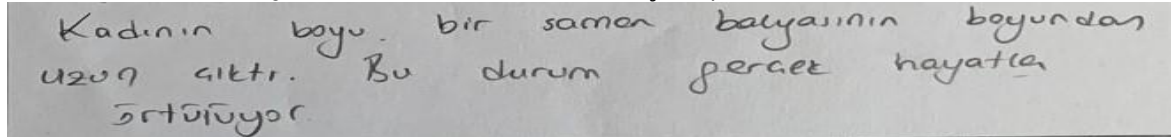 Kadının boyu. bir saman balyasının boyundan
uzun çıktı. Bu durum gerçek hayatla
örtülüyor